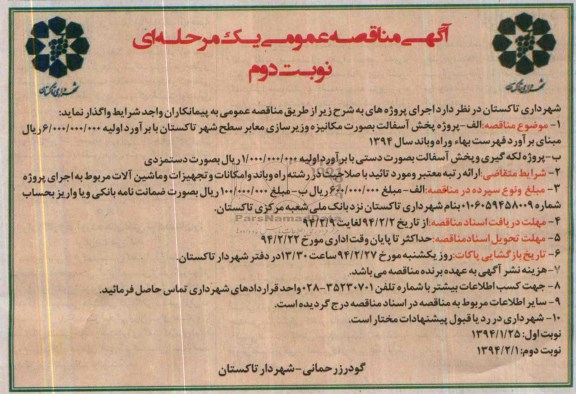 آگهی مناقصه عمومی یک مرحله‌ای
نوبت دوم
شهرداری تاکستان
شهرداری تاکستان
شهرداری تاکستان در نظر دارد اجرای پروژه های به شرح زیر از طریق مناقصه عمومی به پیمانکاران واجد شرایط واگذار نماید:
۱- موضوع مناقصه: الف- پروژه پخش آسفالت بصورت مکانیزه و زیرسازی معابر سطح شهر تاکستان با برآورد اولیه ۶/۰۰۰/۰۰۰/۰۰۰ ریال
مبنای برآورد فهرست بهاء و راه و باند سال ۱۳۹۴
ب- پروژه لکه گیری و پخش آسفالت بصورت دستی با برآورد اولیه ۱/۰۰۰/۰۰۰/۰۰۰ ریال بصورت دستمزدی
۲- شرایط متقاضی: ارائه رتبه معتبر و مورد تائید با صلاحیت در رشته راه و باند و امکانات و تجهیزات و ماشین آلات مربوط به اجرای پروژه
۳- مبلغ و نوع سپرده در مناقصه: الف- مبلغ ۶۰۰/۰۰۰/۰۰۰ ریال ب- مبلغ ۱۰۰/۰۰۰/۰۰۰ ریال بصورت ضمانت نامه بانکی و یا واریز بحساب
شماره ۰۱۰۶۰۵۹۴۵۸۰۰۹ بنام شهرداری تاکستان نزد بانک ملی شعبه مرکزی تاکستان.
۴- مهلت دریافت اسناد مناقصه: از تاریخ ۹۴/۲/۲ لغایت ۹۴/۲/۹
۵- مهلت تحویل اسناد مناقصه: حداکثر تا پایان وقت اداری مورخ ۹۴/۲/۲۲
۶- تاریخ بازگشایی پاکات: روز یکشنبه مورخ ۹۴/۲/۲۷ ساعت ۱۳/۳۰ در دفتر شهردار تاکستان.
۷- هزینه نشر آگهی به عهده برنده مناقصه می باشد.
۸- جهت کسب اطلاعات بیشتر با شماره تلفن ۳۵۲۳۰۷۰۱-۰۲۸ واحد قراردادهای شهرداری تماس حاصل فرمائید.
۹- سایر اطلاعات مربوط به مناقصه در اسناد مناقصه درج گردیده است.
۱۰- شهرداری در رد یا قبول پیشنهادات مختار است.
نوبت اول: ۱۳۹۴/۱/۲۵
نوبت دوم: ۱۳۹۴/۲/۱
گودرز رحمانی- شهردار تاکستان